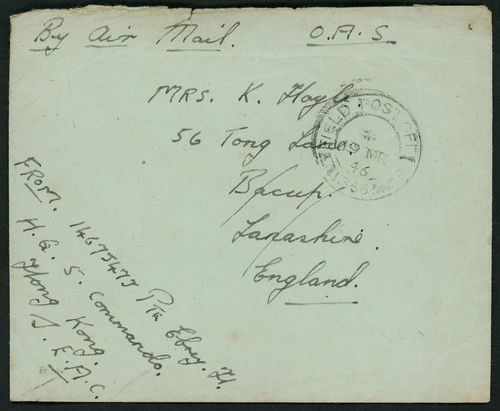 By Air Mail. O.A.S
MRS. K. Hoyle
56 Tong Lane
Bacup.
Lancashire.
England.
FIELD POST OFFICE
19 MR
46
FROM. 14675475 Pte Ebrey. H.
H.Q. 5. Commando.
Hong Kong.
S.E.A.C.